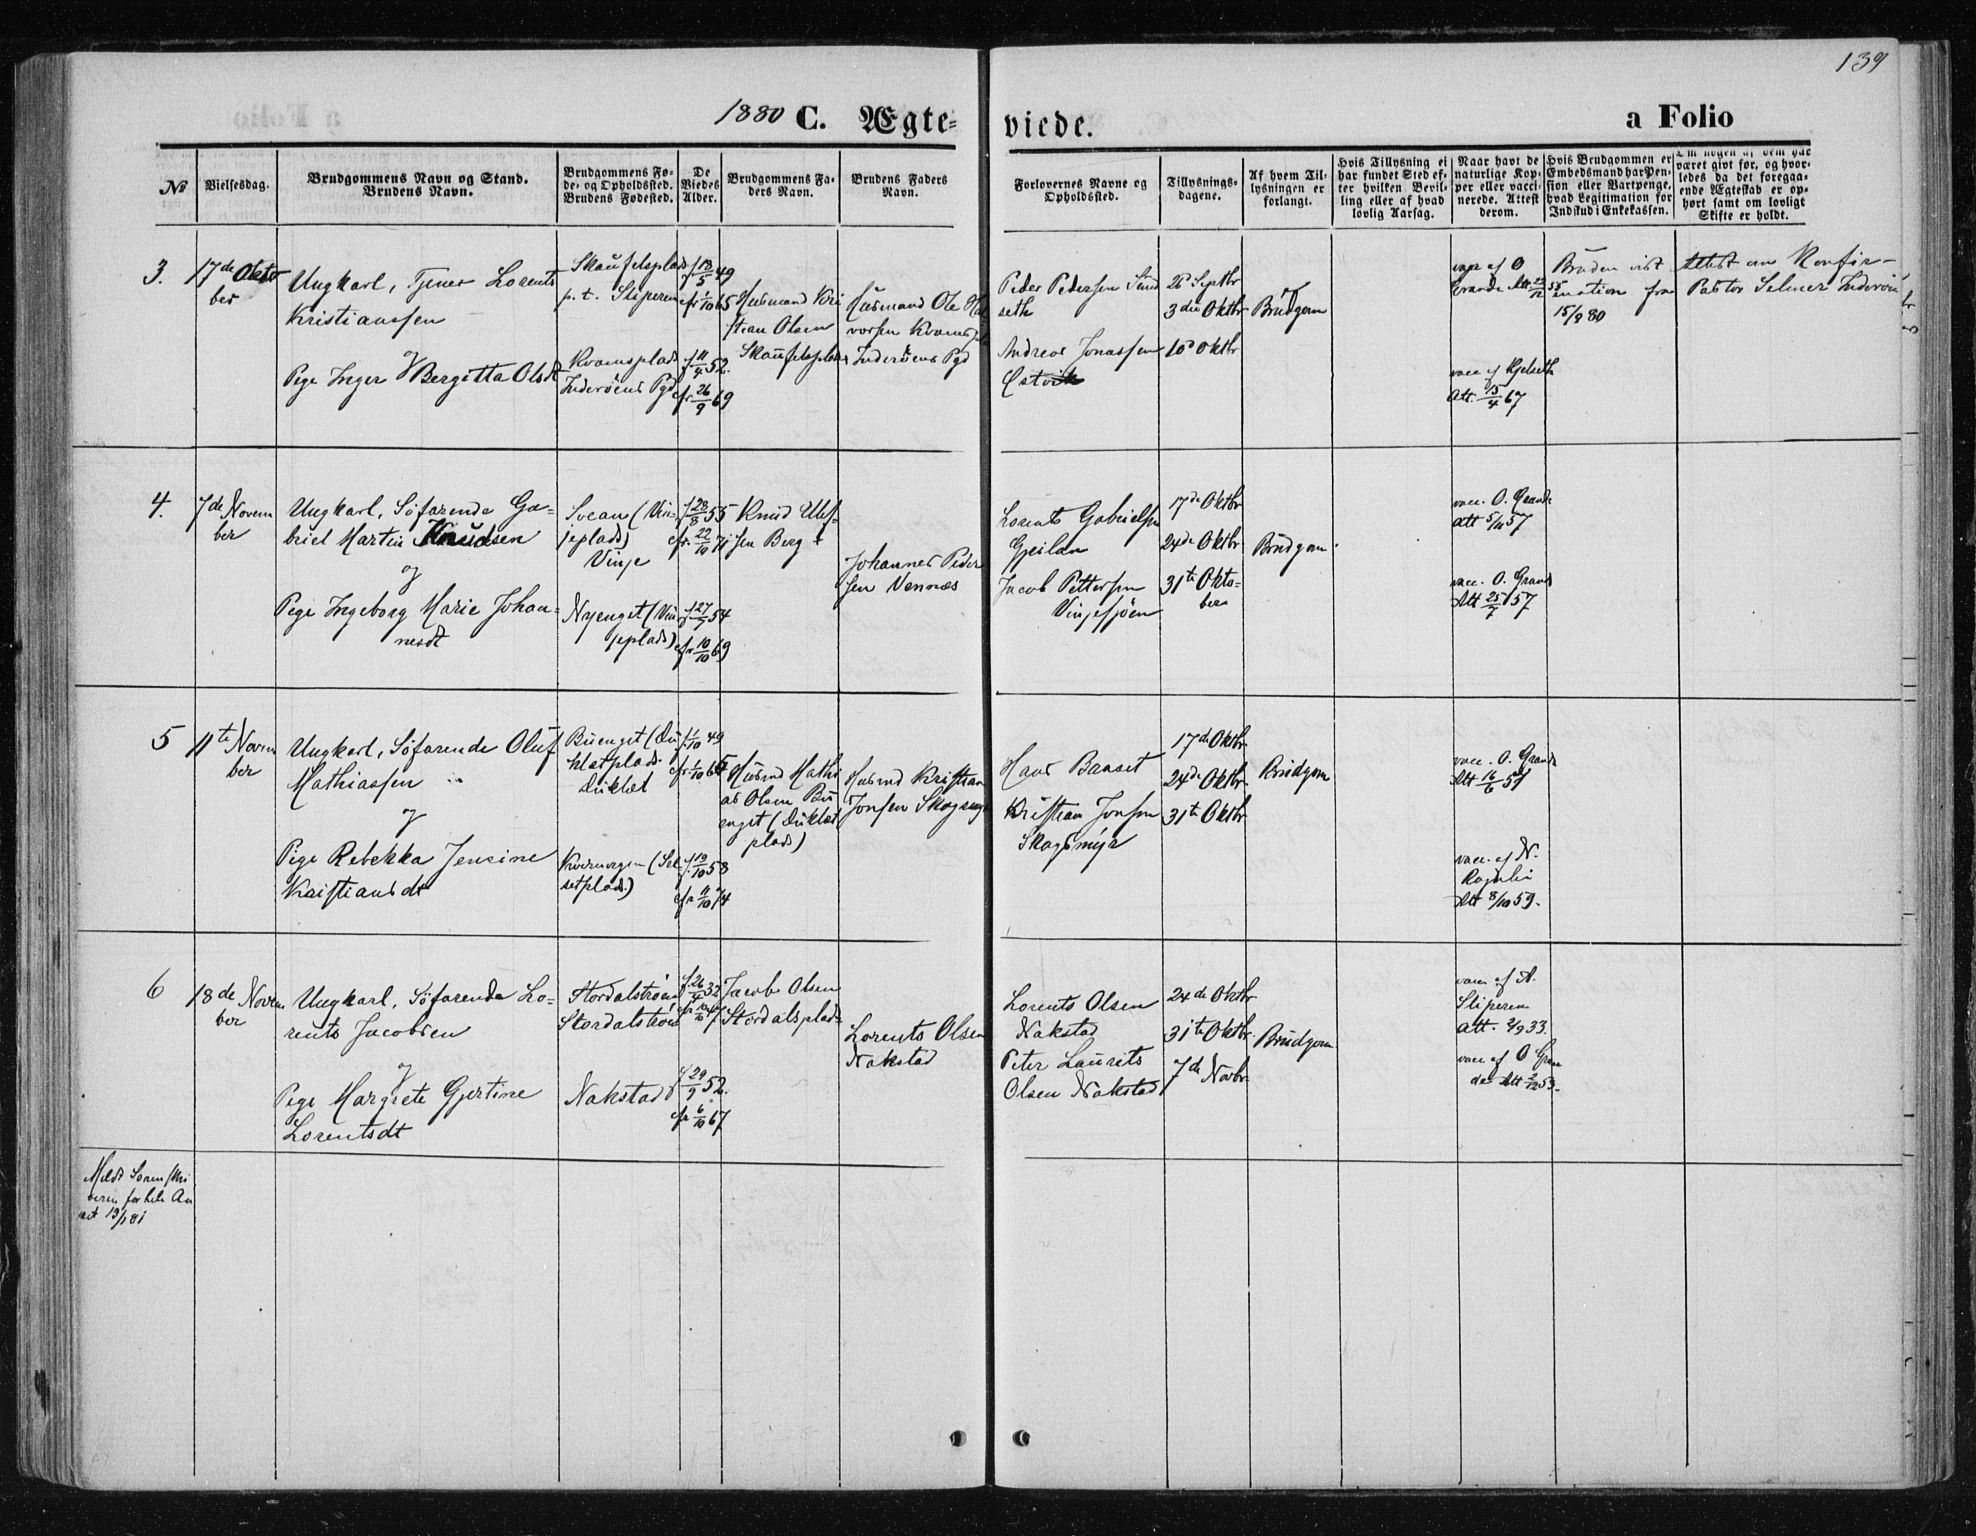 139
1880 C. Ægte-
viede.
a Folio
No
Vielsesdag.
Brudgommens Navn og Stand.
Brudens Navn.
Brudgommens Fø-
de- og Opholdssted.
Brudens Fødested.
De
Viedes
Alder.
Brudgommens Fa-
ders Navn.
Brudens Faders
Navn.
Forlovernes Navne og
Opholdssted.
Tillysnings-
dagene.
Af hvem Til-
lysningen er
forlangt.
Hvis Tillysning ei
har fundet Sted ef-
ter hvilken Bevil-
ling eller af hvad
lovlig Aarsag.
Naar havt de
naturlige Kop-
per eller vacci-
nerede. Attest
derom.
Hvis Brudgommen er
Embedsmand har Pen-
sion eller Vartpenge,
hvad Legitimation for
Indskud i Enkekassen.
Om nogen af dem har
været givt før, og hvor-
ledes da det foregaa-
ende Ægteskab er op-
hørt samt om lovligt
Skifte er holdt.
3.
17de Okto
ber
Ungkarl, Tjener Lorents
Kristianssen
og
Pige Inger Bergitta Olsdt
Skaufelsplads
p. t. Stiperen
Kvamsplads
Inderøens Pgd
f 13/5 49
cfr 1/10 65
f 11/4 52.
cfr 26/9 69
Husmand Kri
stian Olsen
Skaufelsplads
Husmand Ole Hal
vorsen Kvams
Inderöens Pgd
Peder Pedersen Sund
seth
Andreas Jonassen
Östvik
26 Septbr
3die Oktbr
10 Oktbr
Brudgom
vacc af O
Grande Att 22/12 55
vacc af Kjelseth
Att. 15/4 67
Bruden vist Attest om Konfir-
mation fra Pastor Selmer Inderöen
15/9 80
4.
7de Novem
ber
Ungkarl, Söfarende Ga-
briel Martin Knudsen
og
Pige Ingeborg Marie Johan-
nesdt
Svean (Vin-
jeplads)
Vinje
Nyenget (Vin
jeplads)
f 28/8 55
cfr. 22/10 71
f 27/7 54
cfr 10/10 69
Knud Ulrs-
sen Berg
Johannes Peder
sen Vennæs
Lorents Gabrielsen
Gjeilan
Jacob Pettersen
Vinjesjöen
17de Oktbr
24de Oktbr
31te Okto-
ber
Brudgom
vacc. O. Grande
att 5/11 57
vacc. O. Grande
Att 25/7 57
5
11te Novem
ber
Ungkarl, Söfarende Oluf
Mathiassen
og
Pige Rebekka Jensine
Kristiansdt
Buenget (Du
kletplads
Duklet
Kvernvegen (Sel
setplads)
f. 1/10 49
cfr 1/10 65
f. 19/10 58
cfr 11/10 74
Husmd Mathi
as Olsen Bu
enget (Duklet
plads)
Husmd Kristian
Jonsen Skogsmyr
Hans Banset
Kristian Jonsen
Skogsmyr
17de Oktbr
24de Oktbr
31te Oktbr
Brudgom
vacc. O. Grande
Att 16/6 51
vacc. af N.
Rognli
Att 8/10 59.
6
18de Novem
ber
Ungkarl, Söfarende Lo-
rents Jacobsen
og
Pige Margrete Gjertine
Lorentsdt
Stordalströen
Stordalströen
Nakstad
f 26/4 32
cfr 10/10 47
f 29/9 52.
cfr 6/10 67
Jacob Olsen
Stordalsplads
Lorents Olsen
Nakstad
Lorents Olsen
Nakstad
Peter Laurits
Olsen Nakstad
24de Oktbr
31te Oktbr
7de Novbr
Brudgom
vacc af A.
Stiperen
att. 2/9 33
vacc af O Gran
de Att 2/12 53.
Meldt Soren/kri
veren for hele Aa
ret 19/1 81